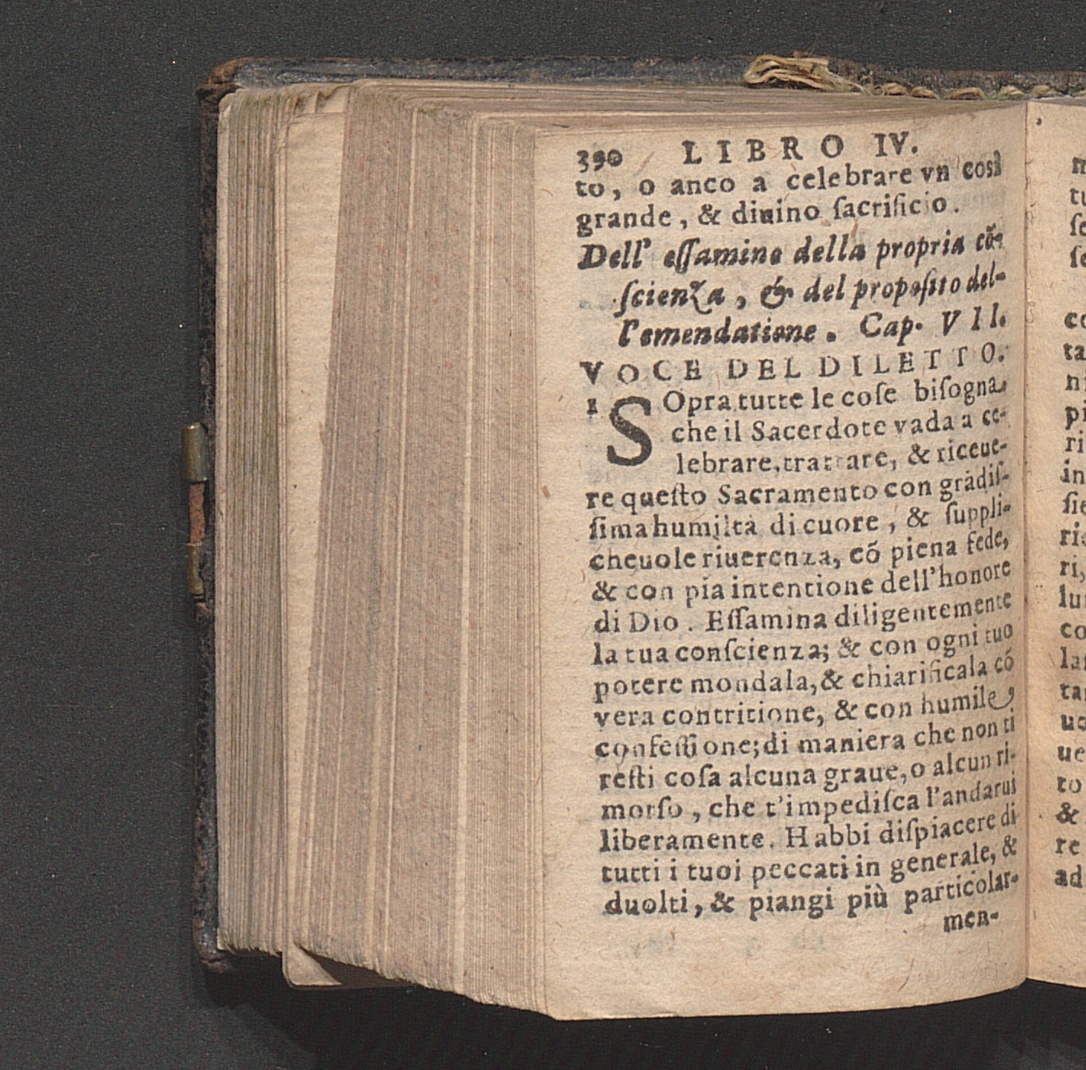 390 LIBRO IV.
to, o anco a celebrare vn così
grande, & diuino ſacrificio.
Dell' eſſamine della propria cõ-
ſcienza, & del propoſito del-
l'emendatione. Cap. VII.
VOCE DEL DILETTO.
1 SOpra tutte le coſe biſogna,
che il Sacerdote vada a ce-
lebrare, trattare, & riceue-
re queſto Sacramento con grãdiſ-
ſima humiltà di cuore, & ſuppli-
cheuole riuerenza, cõ piena fede,
& con pia intentione dell'honore
di Dio. Eſſamina diligentemente
la tua conſcienza; & con ogni tuo
potere mondala, & chiarificala cõ
vera contritione, & con humile
confeſſione; di maniera che non ti
reſti coſa alcuna graue, o alcun ri-
morſo, che t'impediſca l'andarui
liberamente. Habbi diſpiacere di
tutti i tuoi peccati in generale, &
duolti, & piangi più particolar-
men-